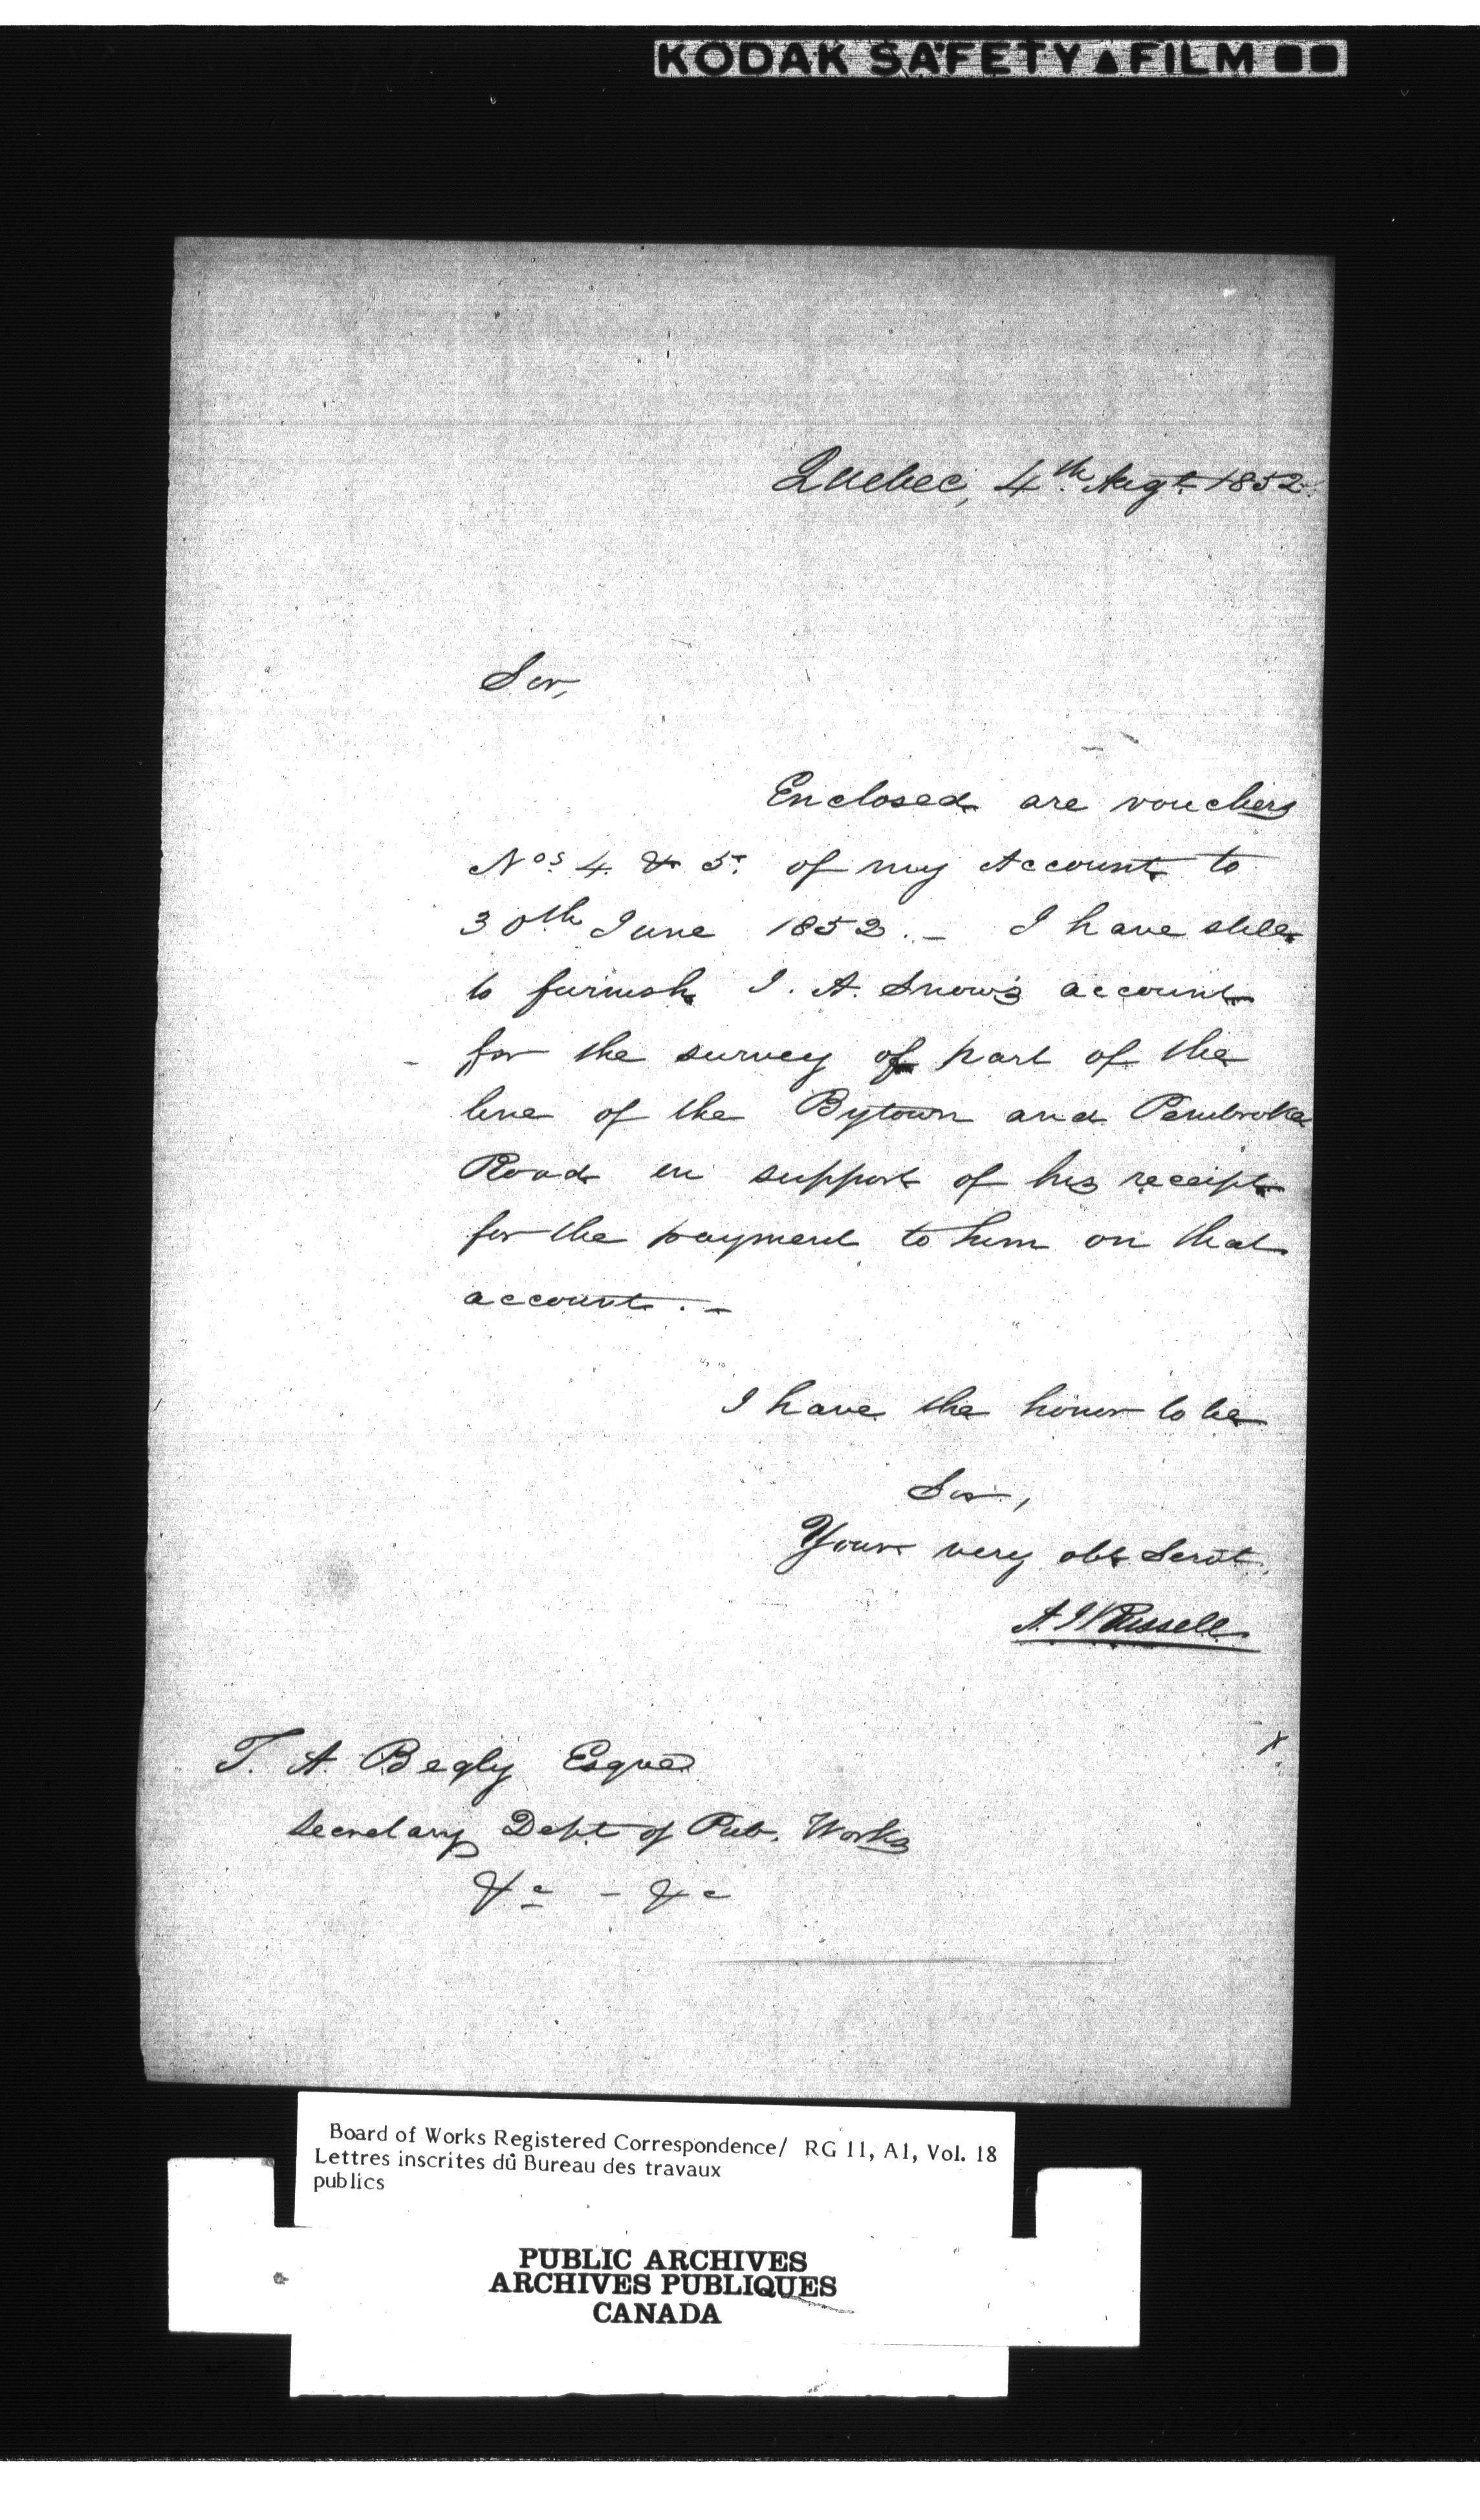 KODAK SAFETY FILM
Quebec, 4th Augt 1852.
Sir,
Enclosed are vouchers
Nos 4. & 5. of my Account to
30th June 1852. – I have still
to furnish J. A. Snow's account
for the survey of part of the
line of the Bytown and Pembroke
Road in support of his receipt
for the payment to him on that
account. –
I have the honor to be
Sir,
Your very obt Servt.
A. J. Russell
T. A. Begly Esqre
Secretary Dept of Pub. Works
&c – &c
Board of Works Registered Correspondence/ RG 11, A1, Vol. 18
Lettres inscrites du Bureau des travaux
publics
PUBLIC ARCHIVES
ARCHIVES PUBLIQUES
CANADA